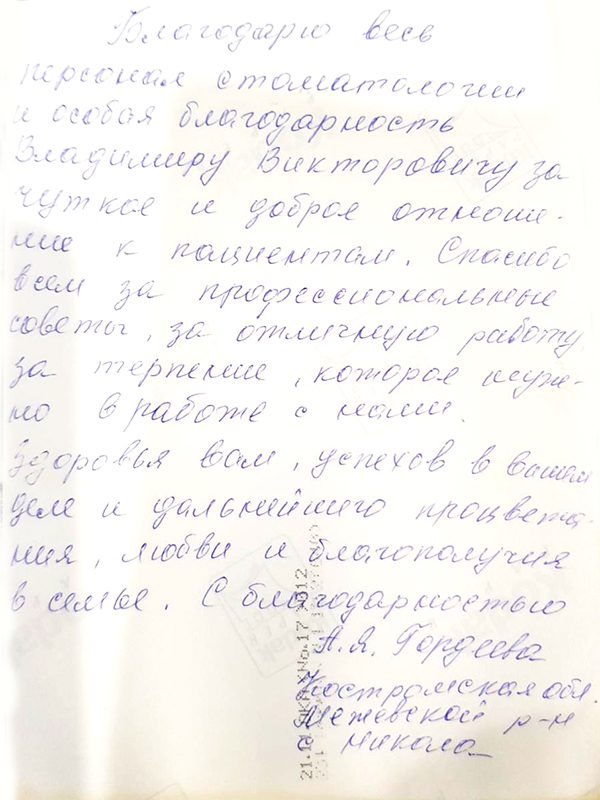 Благодарю весь
персонал стоматологии
и особая благодарность
Владимиру Викторовичу за
чуткое и доброе отноше-
ние к пациентам. Спасибо
всем за профессиональные
советы, за отличную работу,
за терпение, которое нуж-
но в работе с нами.
Здоровья вам, успехов в вашем
деле и дальнейшего процвета-
ния, любви и благополучия
в семье. С благодарностью
А.Я. Гордеева
Костромская обл.
Межевской р-н
с Никола